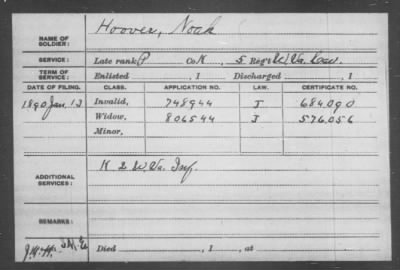 NAME OF SOLDIER: Hoover, Noah
SERVICE: Late rank P Co K, 5 Reg't W. Va. Cav.
TERM OF SERVICE: Enlisted , 1 Discharged , 1
DATE OF FILING. CLASS. APPLICATION NO. LAW. CERTIFICATE NO.
1890 Jan. 13 Invalid, 748944 J 684090
Widow, 806544 J 576056
Minor,
ADDITIONAL SERVICES: K 2 W. Va. Inf.
REMARKS:
Died , 1 , at